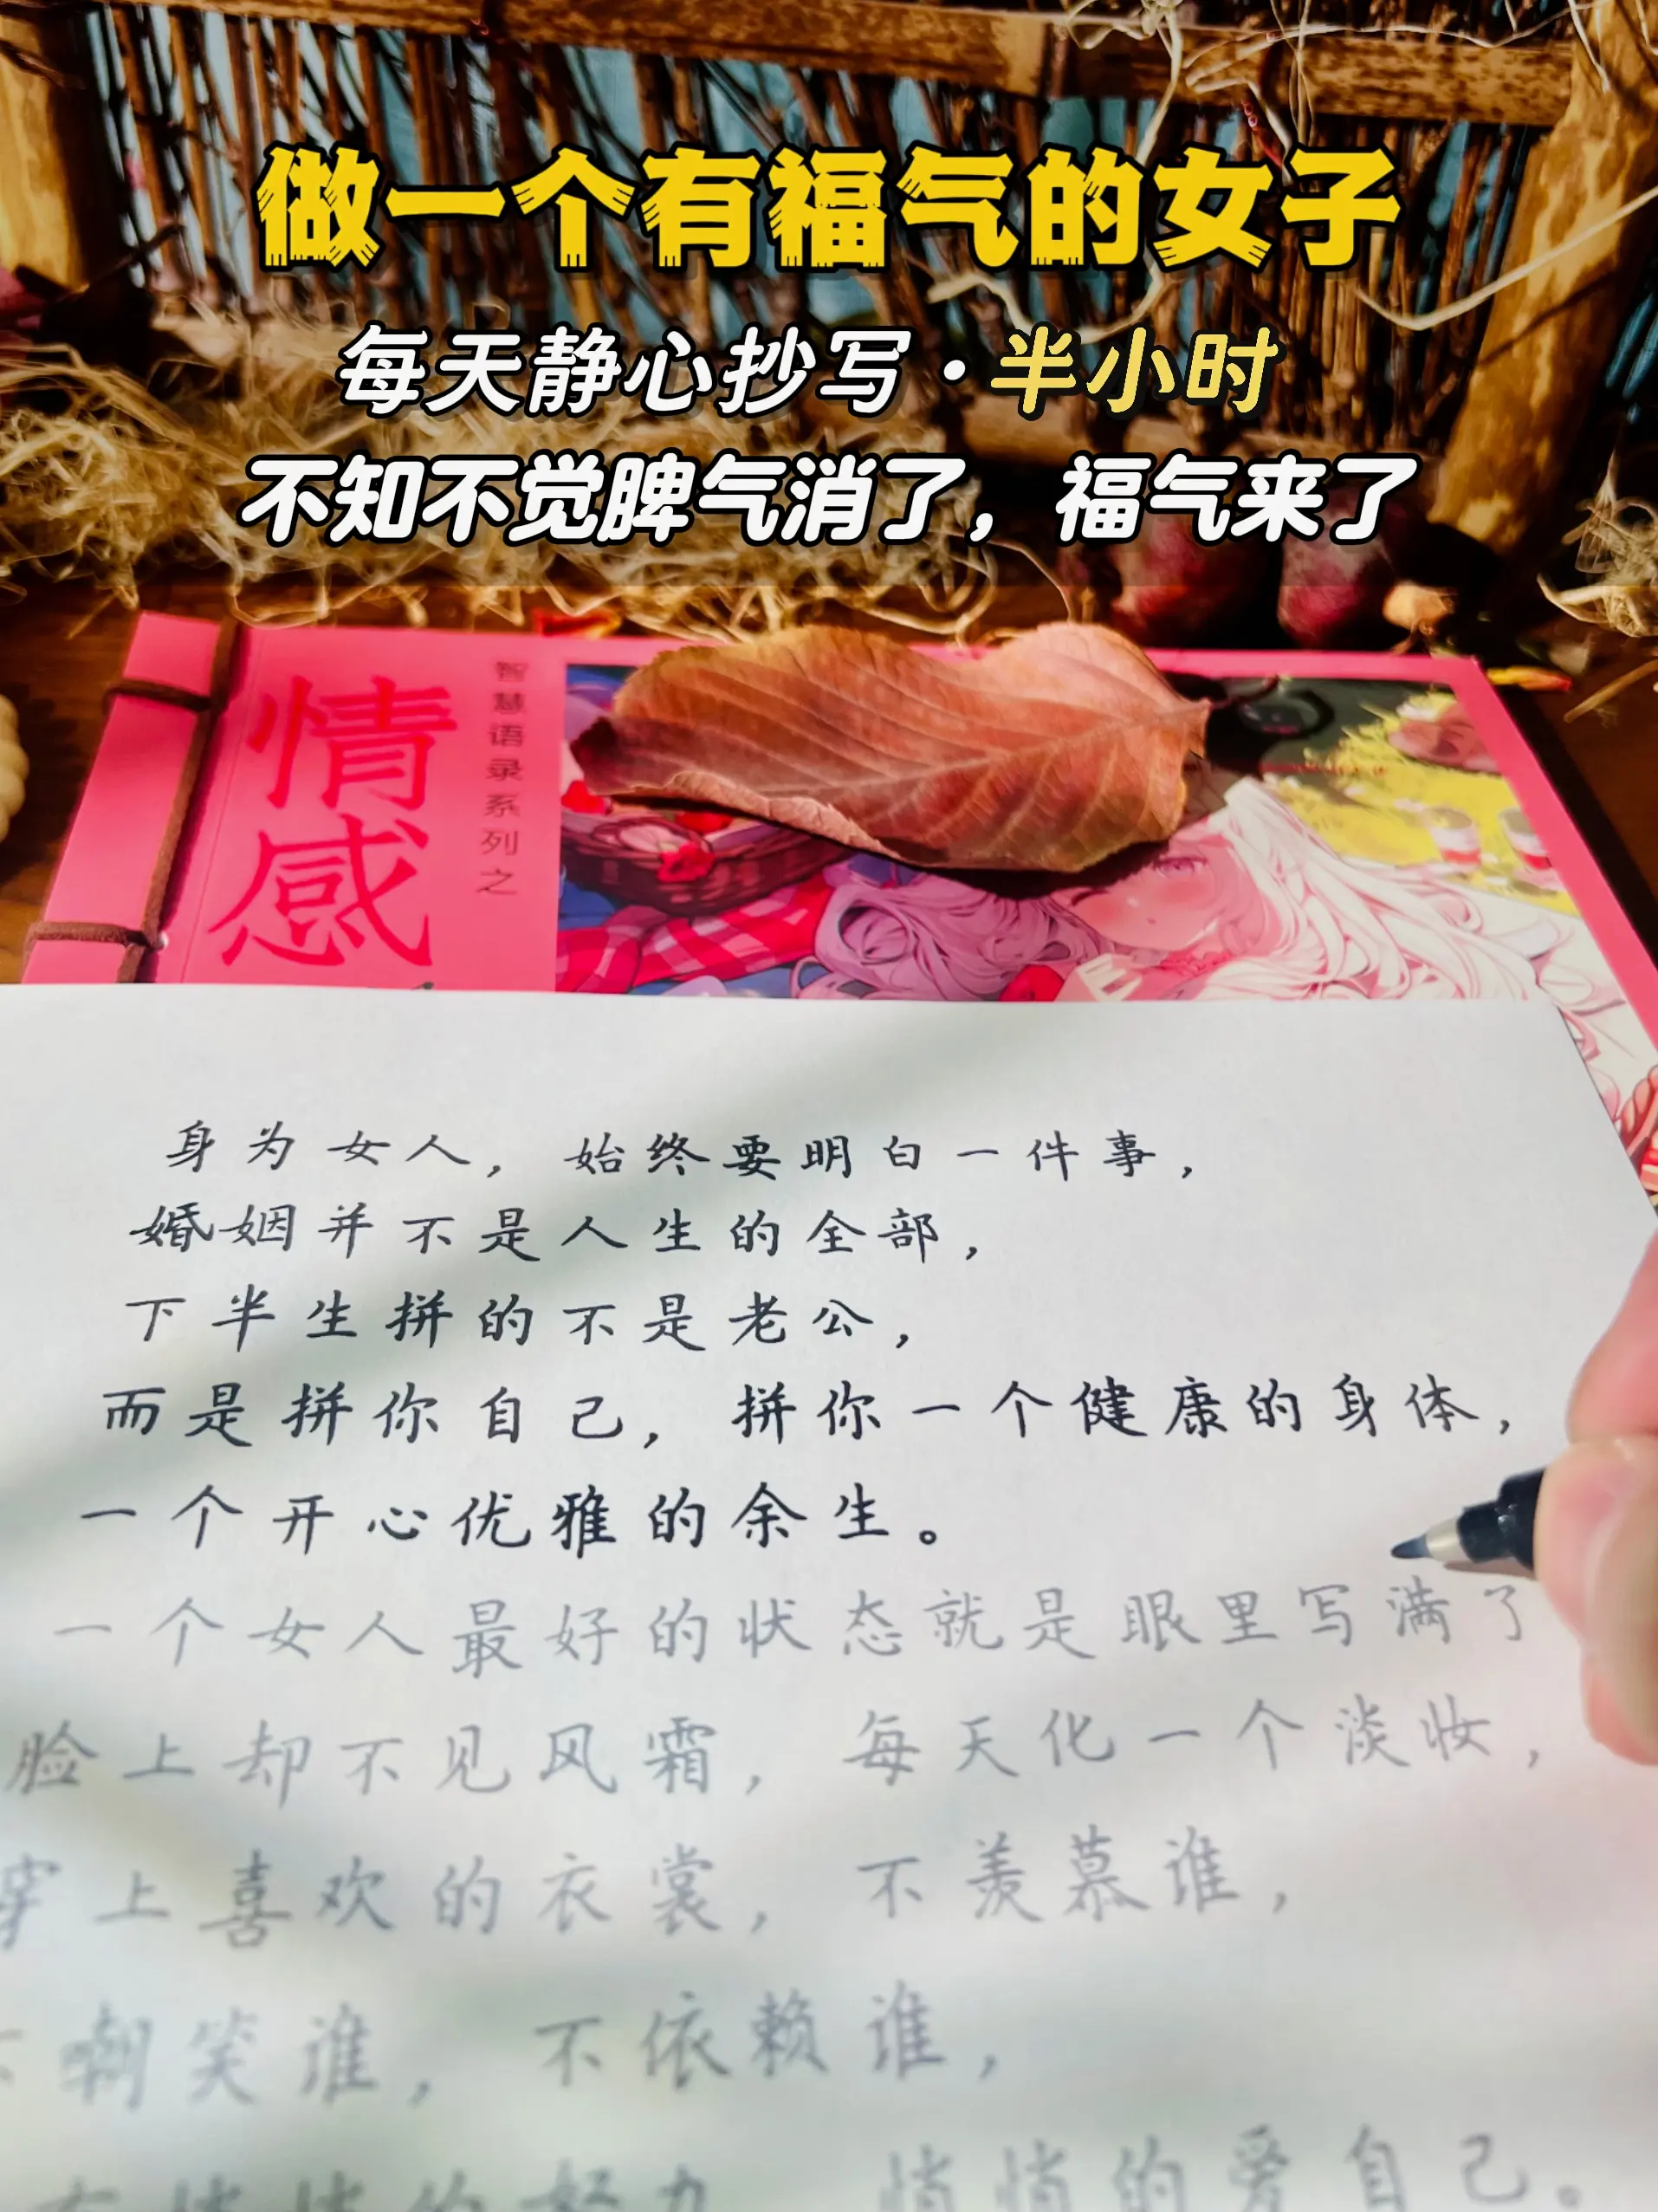 做一个有福气的女子
每天静心抄写·半小时
不知不觉脾气消了，福气来了
智慧语录系列之
情感
身为女人，始终要明白一件事，
婚姻并不是人生的全部，
下半生拼的不是老公，
而是拼你自己，拼你一个健康的身体，
一个开心优雅的余生。
一个女人最好的状态就是眼里写满了
脸上却不见风霜，每天化一个淡妆，
穿上喜欢的衣裳，不羡慕谁，
嘲笑谁，不依赖谁，
悄悄的努力 悄悄的爱自己。